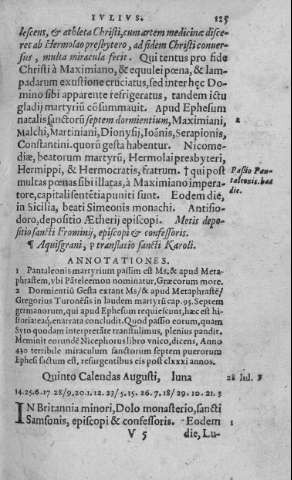 IVLIVS. 125
lescens, & athleta Christi, cum artem medicinæ disce-
ret ab Hermolao presbytero, ad fidem Christi conuer-
sus, multa miracula fecit. Qui tentus pro fide
Christi à Maximiano, & equulei pœna, & lam-
padarum exustione cruciatus, sed inter hęc Do-
mino sibi apparente refrigeratus, tandem ictu
gladij martyriū cōsummauit. Apud Ephesum
natalis sanctorū septem dormientium, Maximiani, 2
Malchi, Martiniani, Dionysij, Ioānis, Serapionis,
Constantini. quorū gesta habentur. Nicome-
diæ, beatorum martyrū, Hermolai presbyteri,
Hermippi, & Hermocratis, fratrum. † qui post † Passio Pan-
multas pœnas sibi illatas, à Maximiano impera- taleonis. habe
tore, capitali sentētia puniti sunt. Eodem die, die.
in Sicilia, beati Simeonis monachi. Antisio-
doro, depositio Ætherij episcopi. Metis depo-
sitio sancti Frominij, episcopi & confessoris.
¶ Aquisgrani, translatio sancti Karoli.
ANNOTATIONES.
1 Pantaleonis martyrium passim est Ms, & apud Meta-
phrastem, vbi Pāteleemon nominatur, Græcorum more.
2 Dormientiū Gesta extant Ms/ & apud Metaphrastē/
Gregorius Turonēsis in laudem martyrū cap. 95. Septem
germanorum, qui apud Ephesum requiescunt, hæc est hi-
storia/ eā, enarrata concludit. Quod passio eorum, quam
Syro quodam interpretāte transtulimus, plenius pandit.
Meminit eorundē Nicephorus libro vnico, dicens, Anno
430 terribile miraculum sanctorum septem puerorum
Ephesi factum est, resurgentibus eis post clxxxi annos.
Quinto Calendas Augusti, luna 28 Iul.
14.25.6.17 28/9.20.1.12.23/5.15.26.7.18/29.10.21.3
IN Britannia minori, Dolo monasterio, sancti
Samsonis, episcopi & confessoris. Eodem 1
V 5 die, Lu-